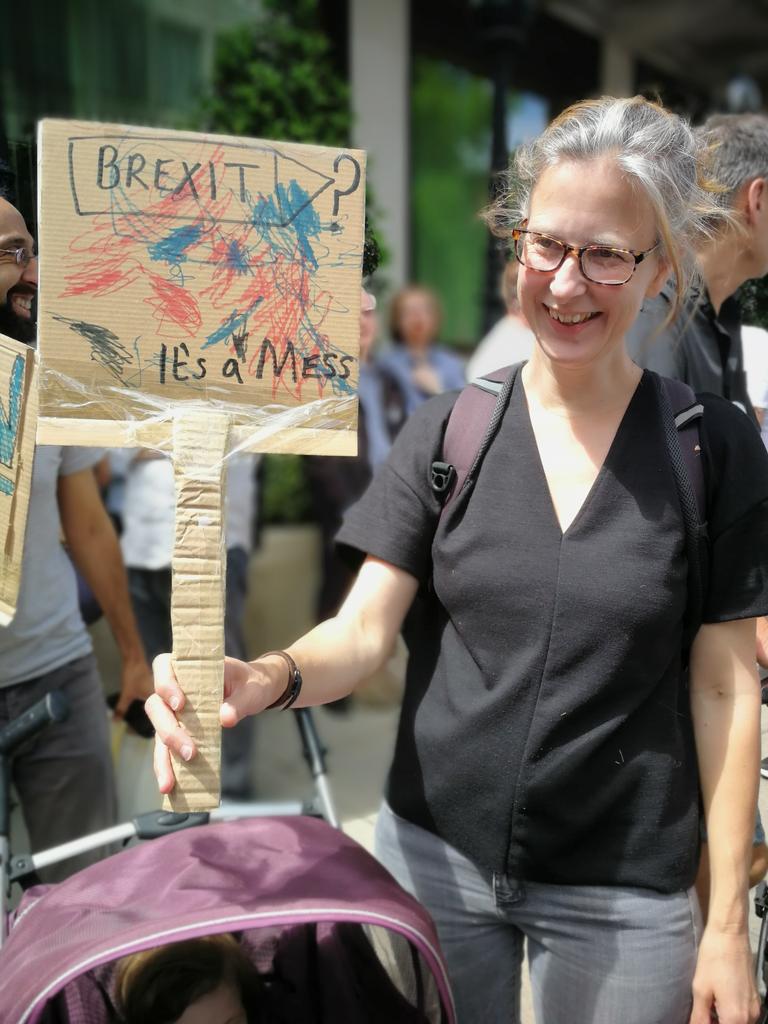 BREXIT ?
It's a Mess